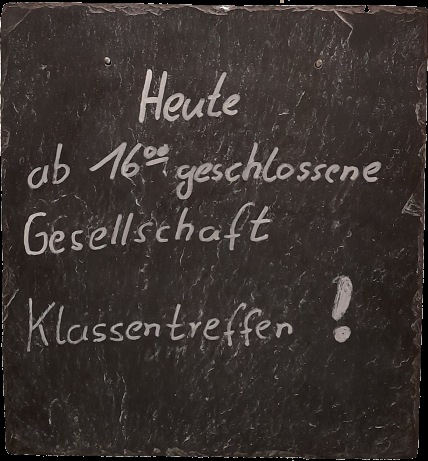 Heute
ab 16⁰⁰ geschlossene
Gesellschaft
Klassentreffen !